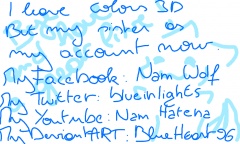 I have colors 3D
But my sister as
my account now.
My Facebook: Nam Wolf
My Twitter: blueinlights
My Youtube: Nam Hatena
My DeviantART: BlueHeart96